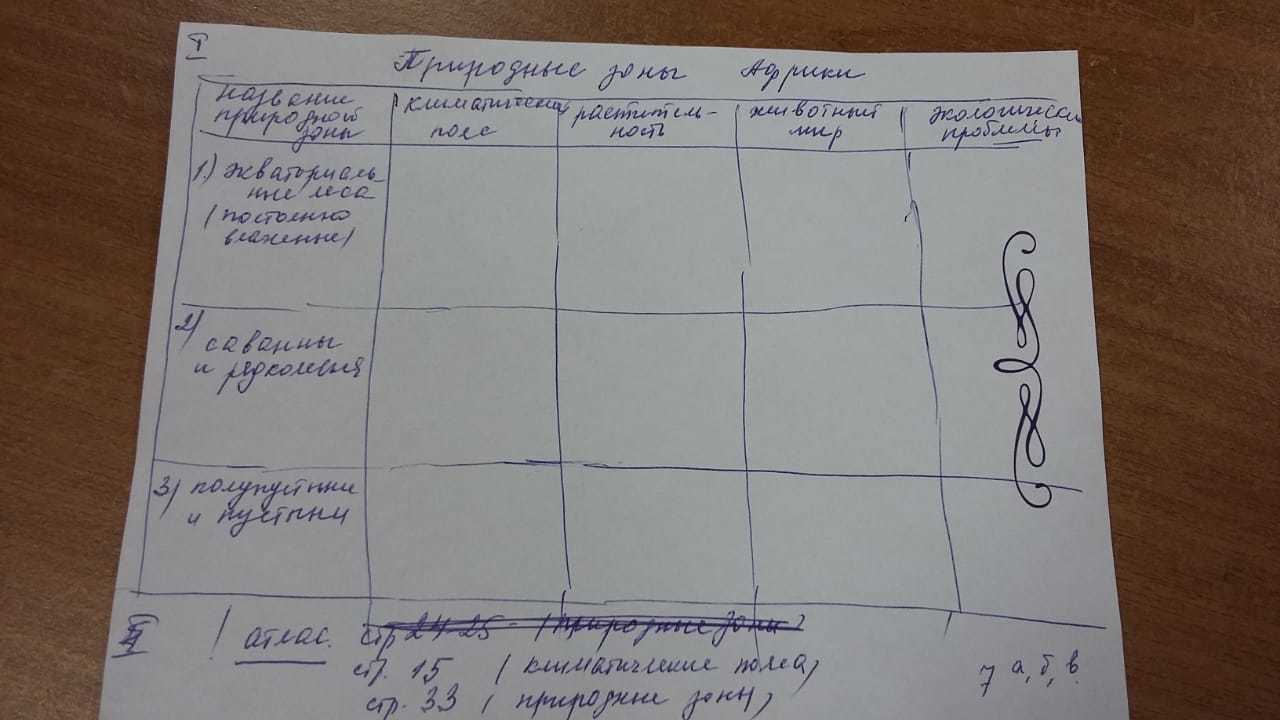 I
Природные зоны Африки
Название природной зоны
климатический пояс
раститель-
ность
животный
мир
экологические
проблемы
1.) Экваториаль
ные леса
(постоянно
влажные)
2) саванны
и редколесья
3) полупустыни
и пустыни
II
! атлас. стр 24-25 - (природные зоны)
стр. 15 (климатические пояса)
стр. 33 (природные зоны)
7 а, б, в.